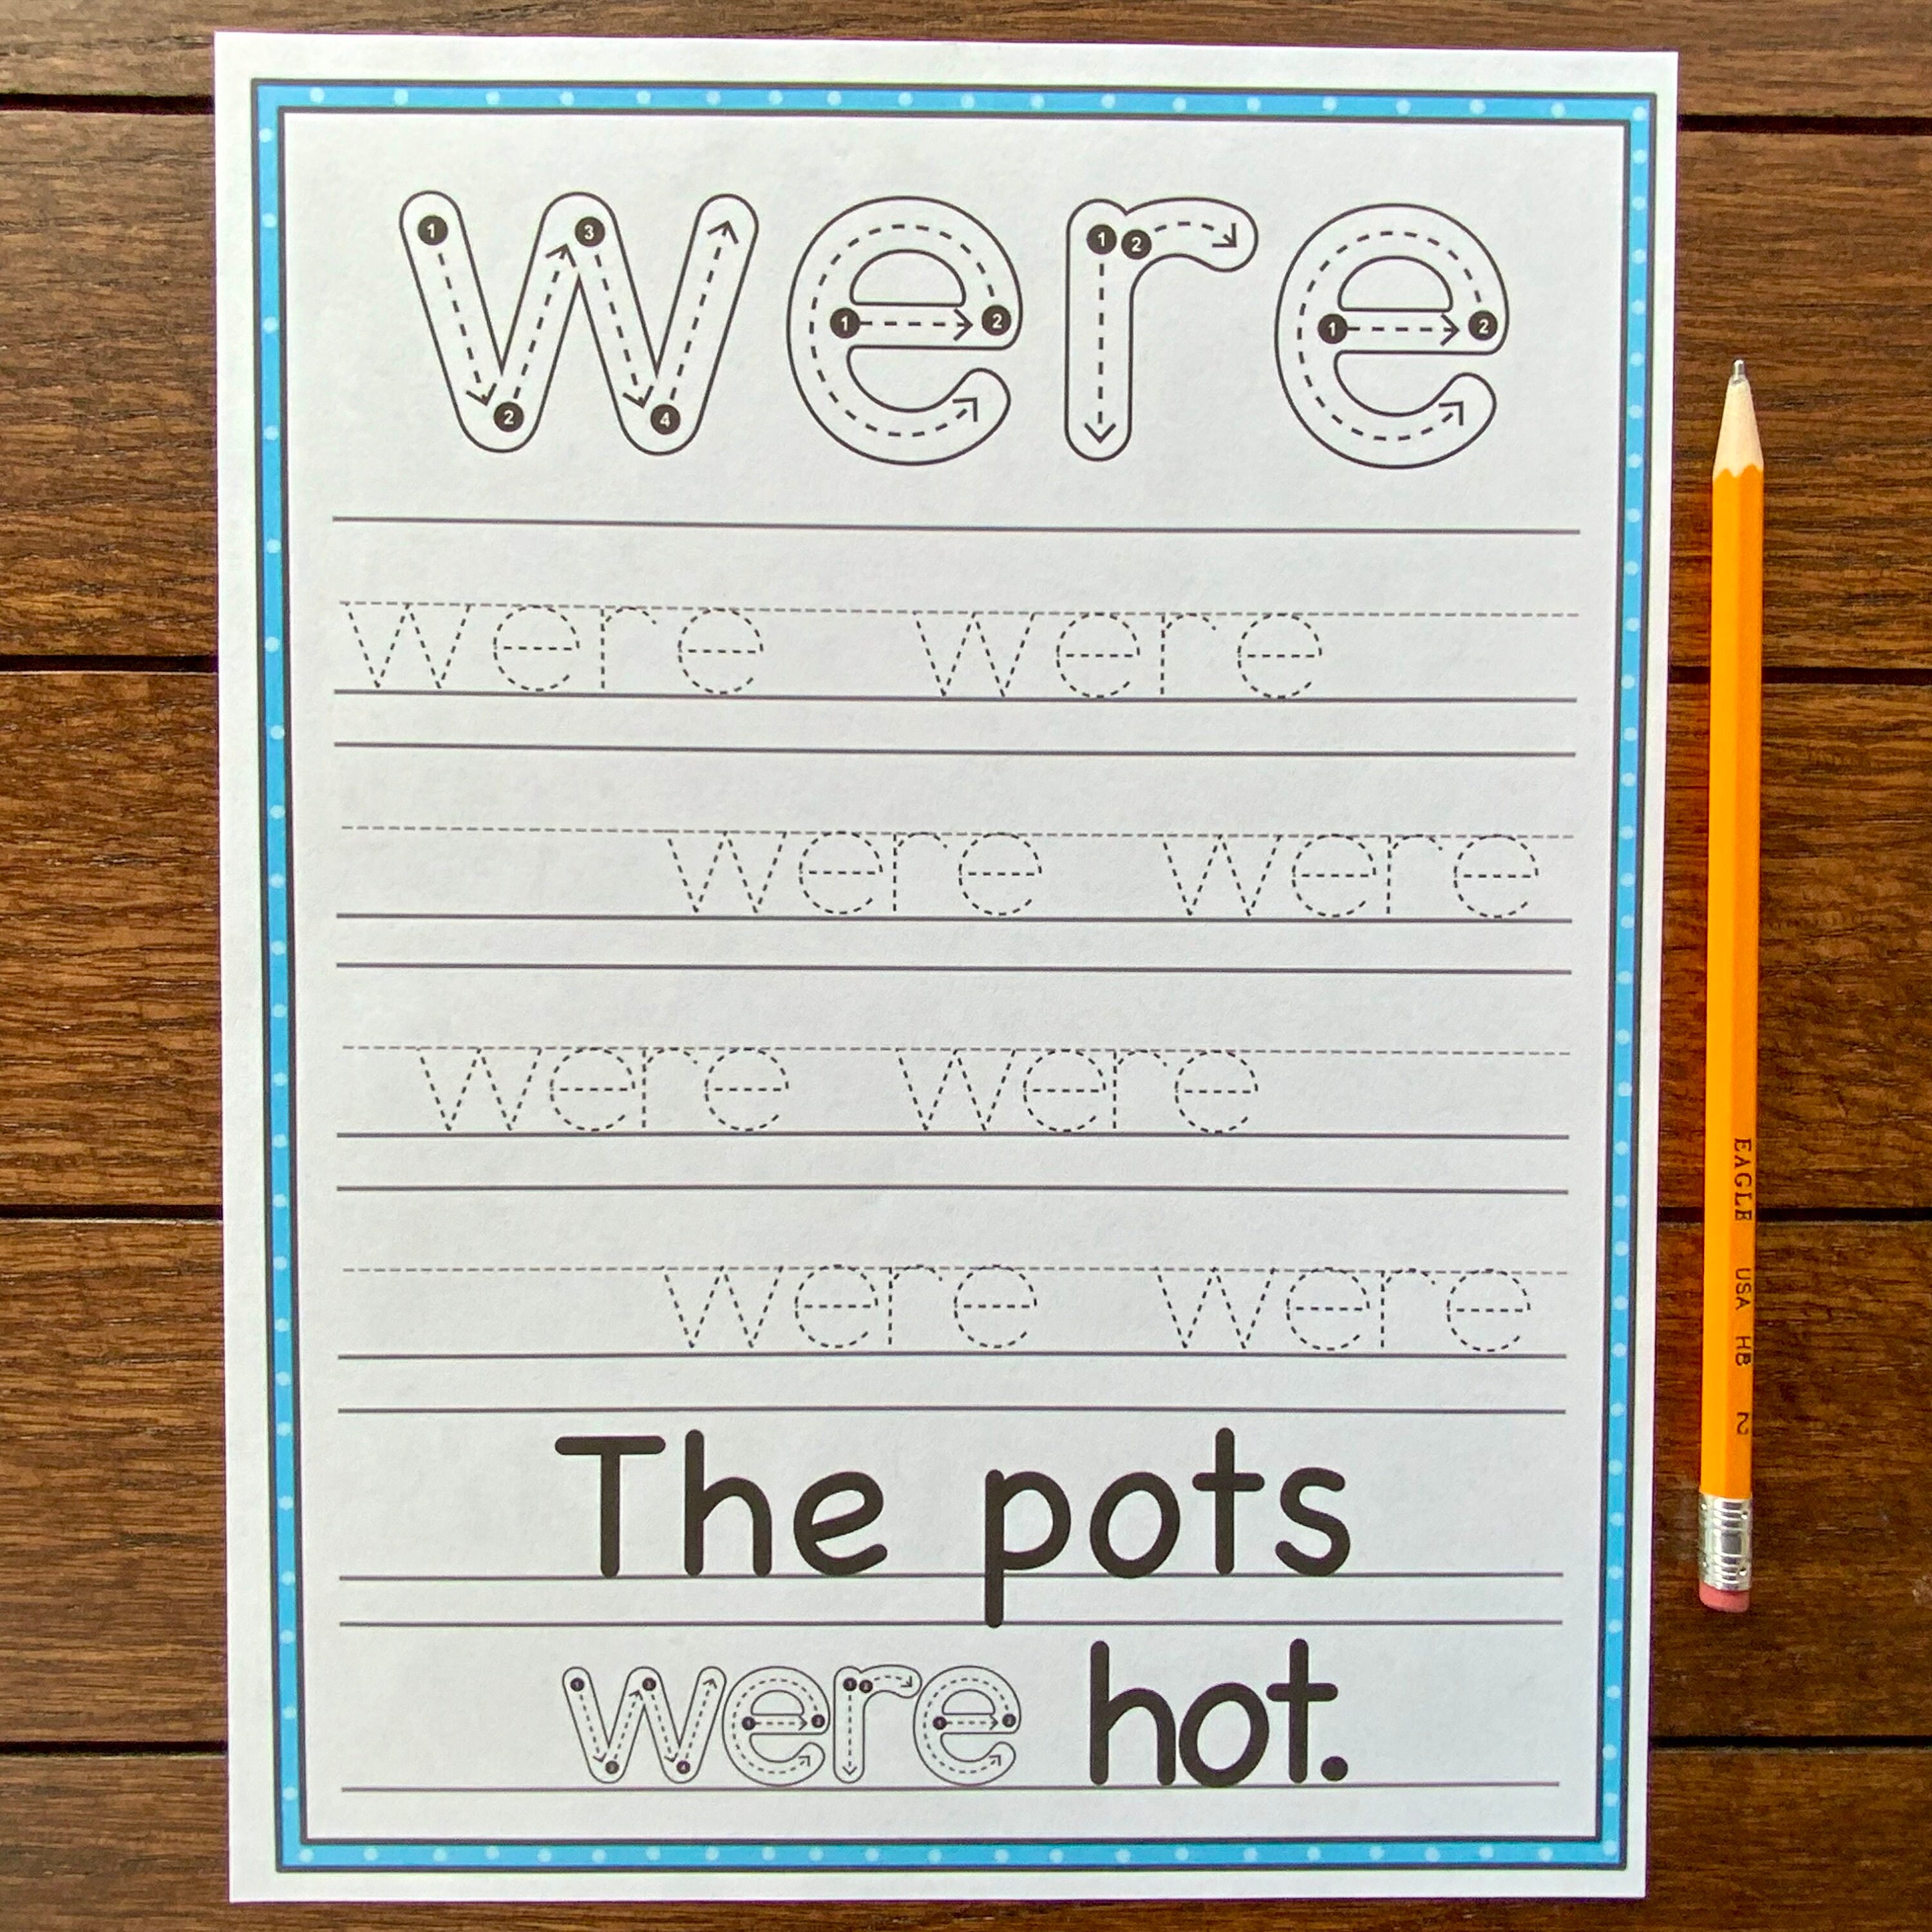 were
were were
were were
were were
were were
The pots
were hot.
EAGLE USA HB 2